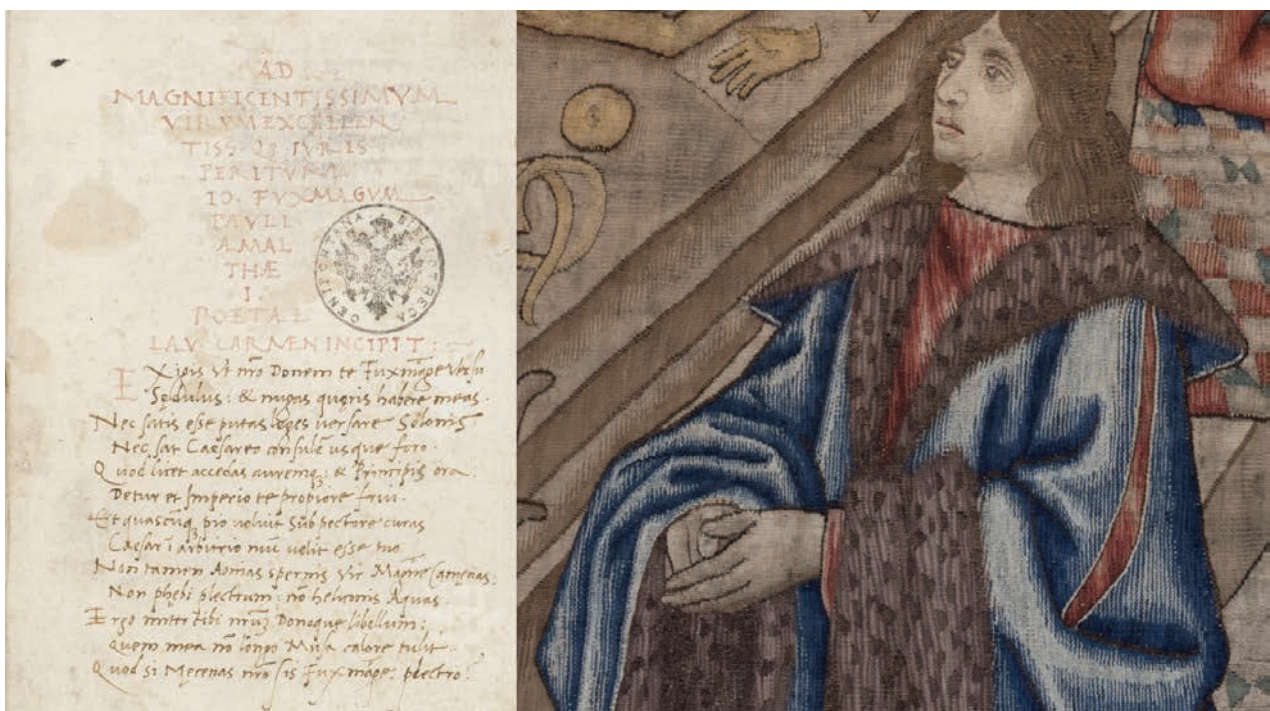 AD
MAGNIFICENTISSIMVM
VIRVM EXCELLEN
TISS. Q3 IVRIS
PERITVM
IO. FVXMAGVM
PAVLI
AMAL
THÆ
I.
POETAE
LAV. CARMEN INCIPIT:
BIBLIOTHECA OENIPONTANA
Exigis vt nrō Donem te Fuxmage versu
Sedulus: & nugas quęris habere meas.
Nec satis esse putas leges versare Solonis
Nec sat Caesareo consule usque foro.
Quod licet accedas auremq; & Principis ora.
Detur et Imperio te propiore frui.
Et quascūq pio voluit sub pectore curas
Caesar ī arbitrio velit esse tuo
Non tamen Aonias spernis Vir Magne Camęnas:
Non phębi plectrum: nō heliconis Aquas.
Ergo tibi Donoque libellum:
Quem mea nō longo Musa calore tulit.
Quod si Męcenas nrō sis Fuxmage: plectro: